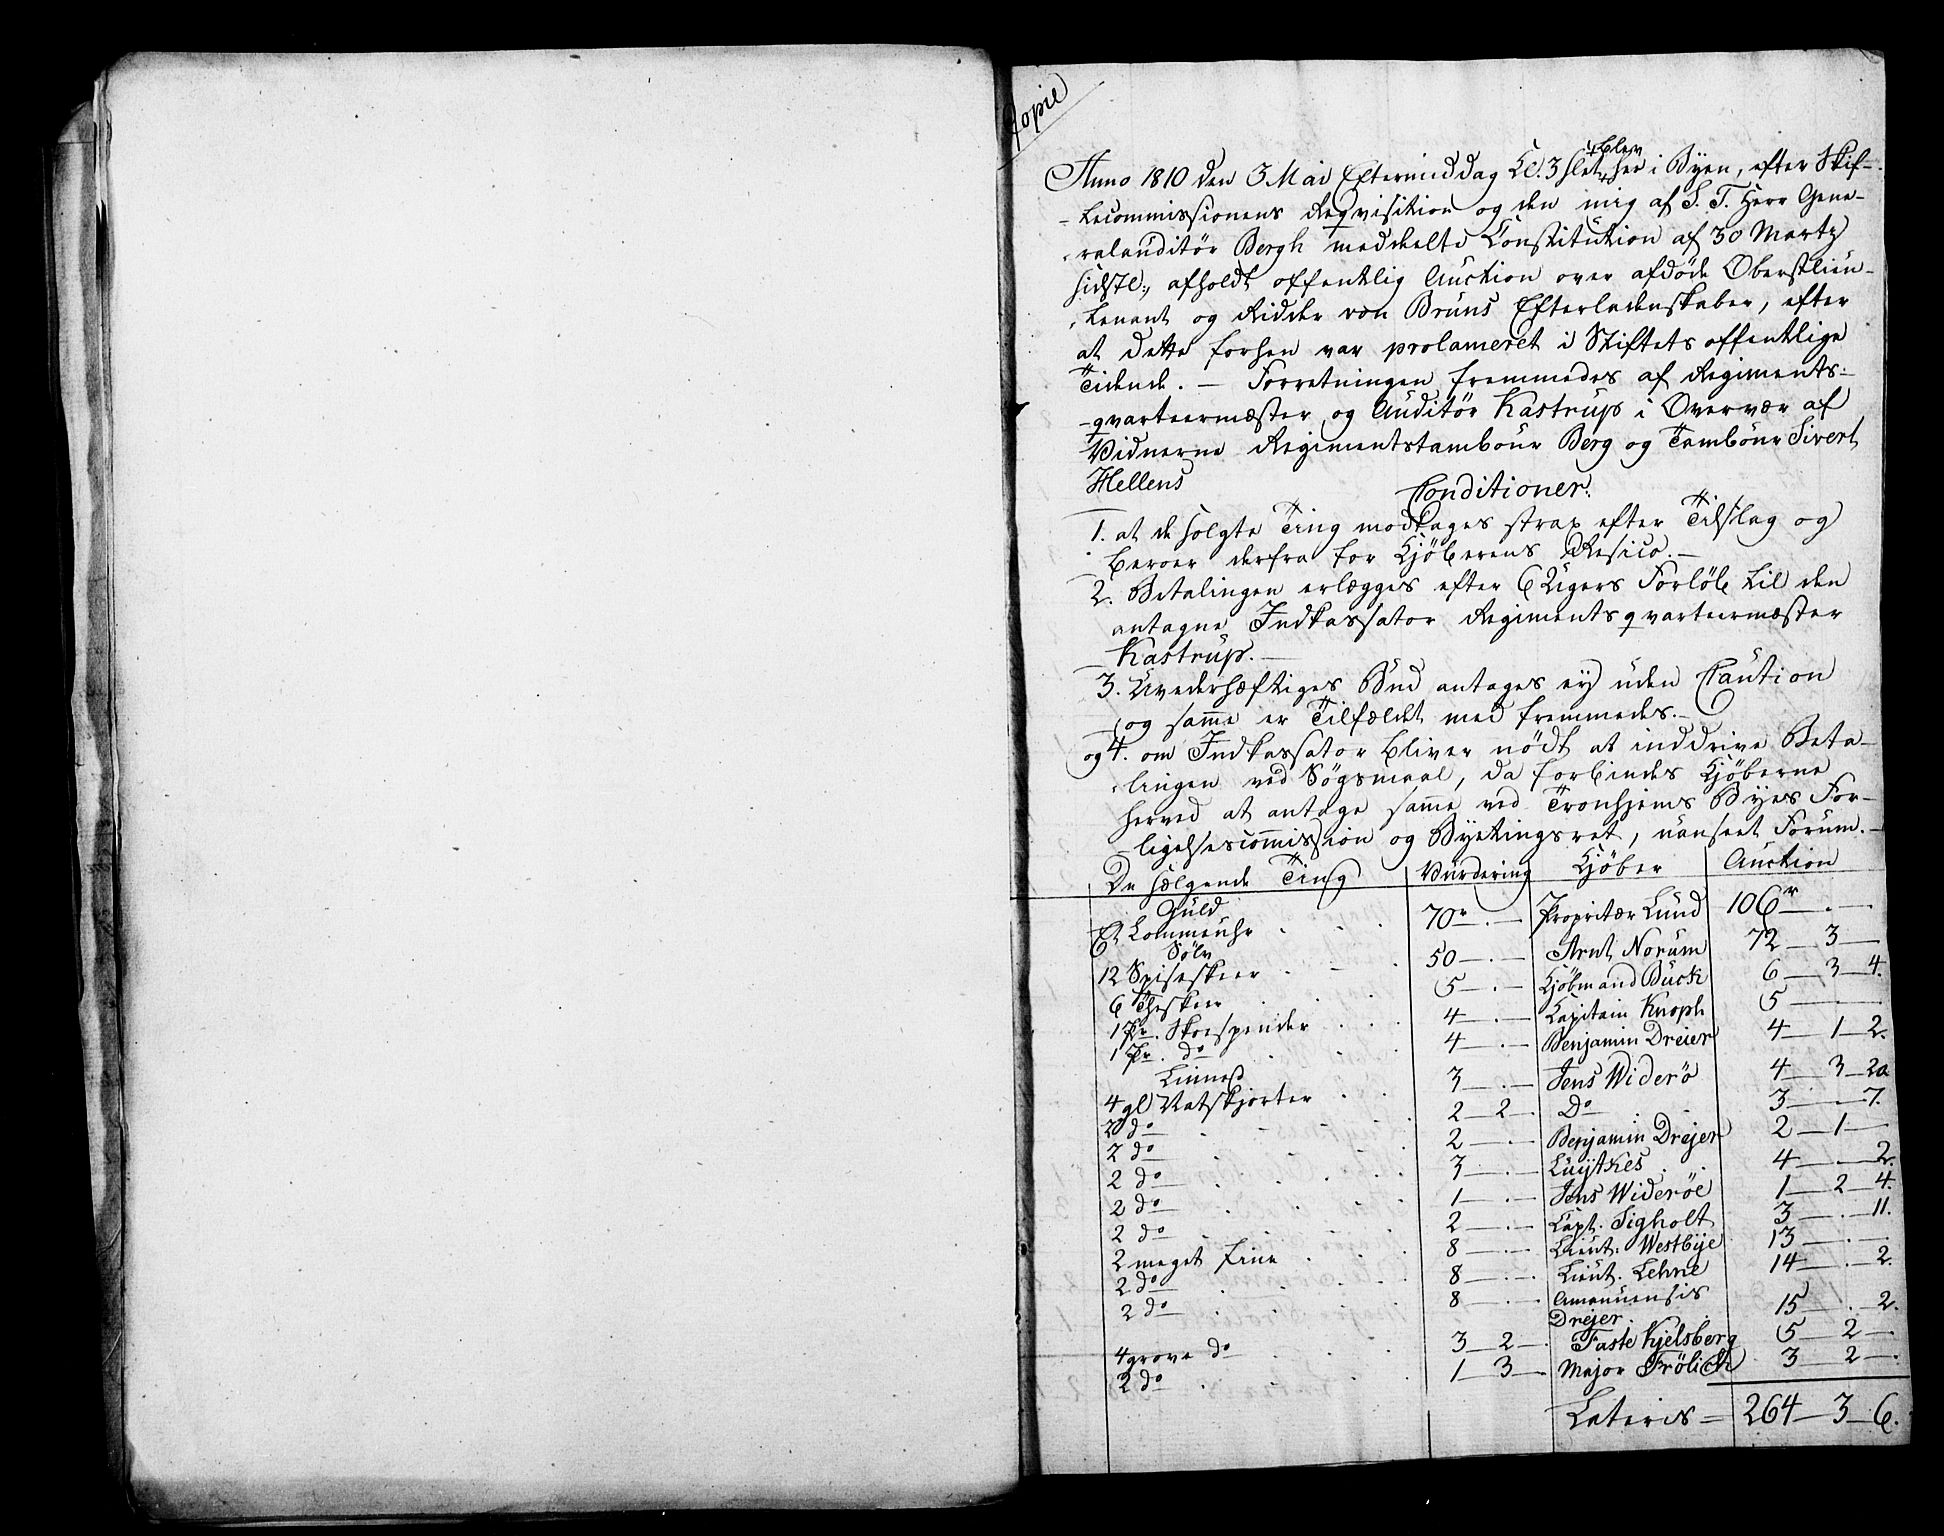 Copie
Anno 1810 den 3 Mai Eftermiddag Kl. 3 slet, blev her i Byen, efter Skif-
-tecommissionens Reqvisition og den mig af S. T. Herr Gene-
-ralauditør Bergh meddeelte Constitution af 30 Marty
sidstl:, afholdt offentlig Auction over afdøde Oberstlieu-
-tenant og Ridder von Bruns Efterladenskaber, efter
at dette forhen var prolameret i Stiftets offentlige
Tidende. — Forretningen fremmedes af Regiments-
-qvarteermæster og Auditør Kastrup i Overvær af
Vidnerne Regimentstambour Berg og Tambour Sivert
Hellens
Conditioner.
1. at de solgte Ting modtages strax efter Tilslag og
beroer derfra for Kjøberens Resico. —
2. Betalingen erlægges efter 6 Ugers Forløb til den
antagne Indkassator Regimentsqvarteermæster
Kastrup. —
3. Uvederhæftiges Bud antages ey uden Caution
og samme er Tilfældet med fremmedes. —
og 4. om Indkassator bliver nødt at inddrive Beta-
-lingen ved Søgsmaal, da forbindes Kjøberne
herved at antage samme ved Tronhjems Byes For-
-ligelsescommission og Byetingsret, uanseet Forum. —
De sælgende Ting Vurdering Kjøber Auction
Guld
Et Lommeuhr 70r — . — Propritær Lund 106r — . —
Sølv
12 Spiseskeer 50 — . — Arnt Norum 72 — 3 —
6 Theskeer 5 — . — Kjøbmand Buck 6 — 3 — 4.
1 Pr. Skoespender 4 — . — Capitain Knoph 5 — . —
1 Pr. do 4 — . — Benjamin Dreier 4 — 1 — 2.
Linned
4 gl Natskjorter 3 — . — Jens Widerö 4 — 3 — 20
2 do 2 — 2 — Do 3 — . — 7.
2 do 2 — . — Benjamin Drejer 2 — 1 —
2 do 3 — . — Luytkes 4 — . — 2.
2 do 1 — . — Jens Widerøe 1 — 2 — 4.
2 do 2 — . — Capt. Sigholt 3 — . — 11.
2 meget fine 8 — . — Lieut. Westbye 13 — . —
2 do 8 — . — Lieut. Lehne 14 — . — 2.
2 do 8 — . — Amanuensis
Drejer 15 — . — 2.
4 grove do 3 — 2 — Faste Kjelsberg 5 — 2 —
2 do 1 — 3 — Major Frölich 3 — 2 —
Lateris = 264 — 3 — 6.